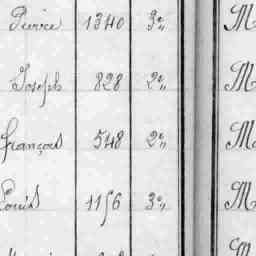 Pierre 1340 3e,, M
Joseph 828 2e,, M
François 548 2e,, M
Louis 1156 3e,, M